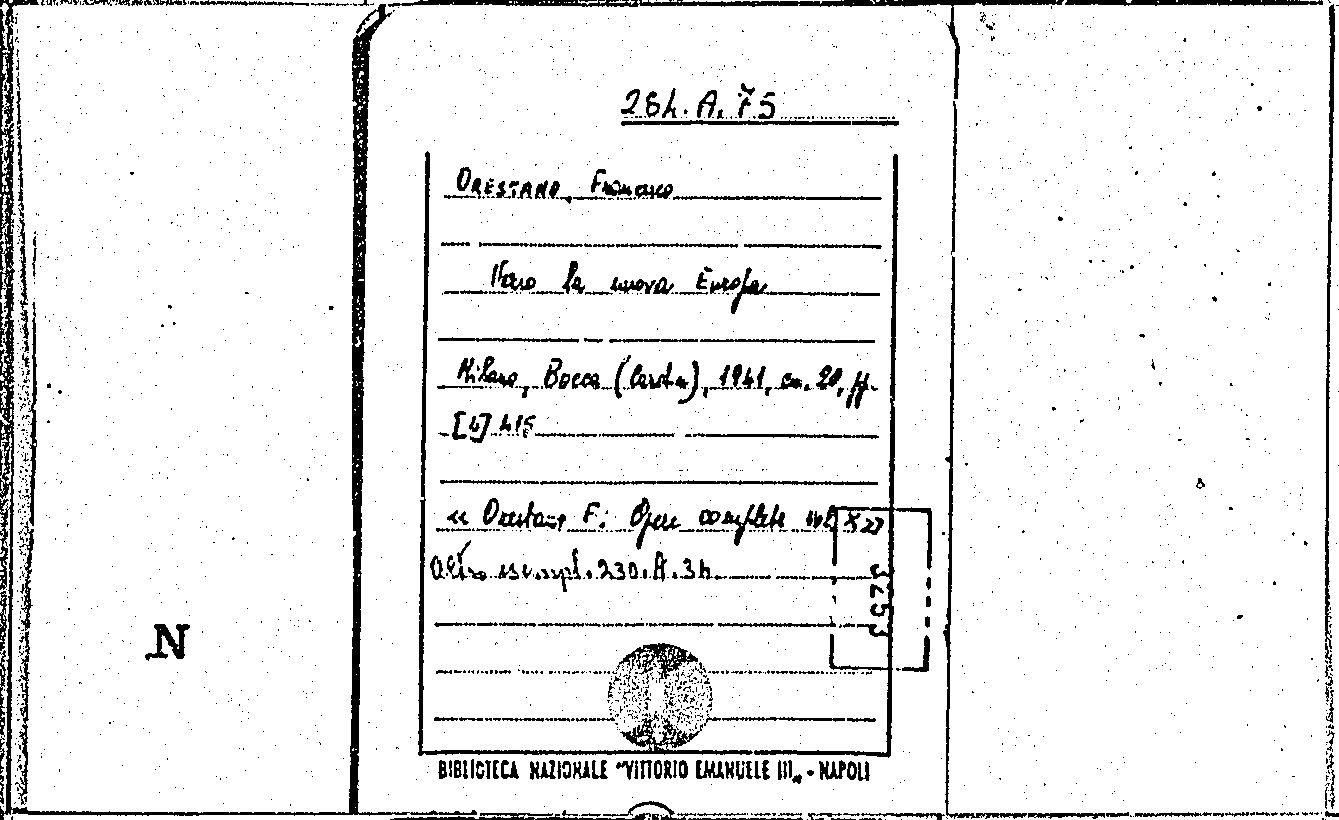 264. A. 75
ORESTANO, Francesco
Verso la nuova Europa
Milano, Bocca ( ), 1941, cm. 20, pp.
[4] 415
" Orestano F.: Opere complete vol. X 27
Altro esempl. 230. A. 34
3253
N
BIBLIOTECA NAZIONALE "VITTORIO EMANUELE III„ - NAPOLI